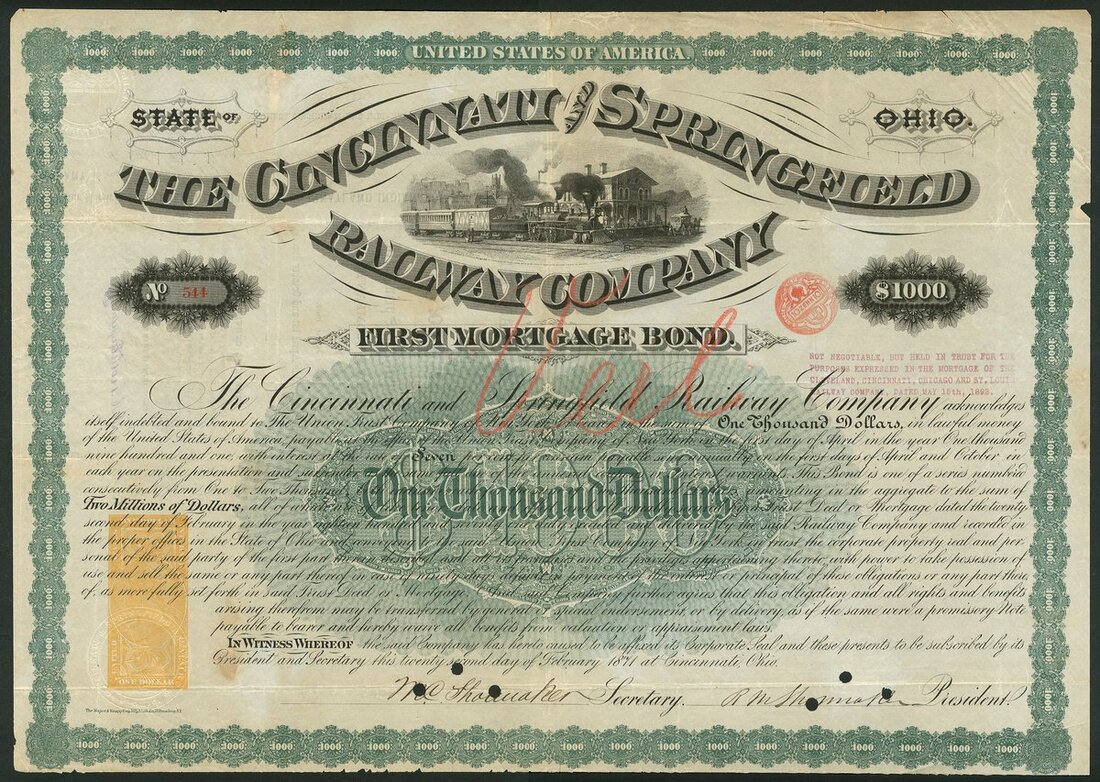 UNITED STATES OF AMERICA
STATE OF OHIO.
THE CINCINNATI AND SPRINGFIELD
RAILWAY COMPANY
No 544
$1000
FIRST MORTGAGE BOND.
Ved
NOT NEGOTIABLE, BUT HELD IN TRUST FOR THE
PURPOSES EXPRESSED IN THE MORTGAGE OF THE
CLEVELAND, CINCINNATI, CHICAGO AND ST. LOUIS
RAILWAY COMPANY, DATED MAY 15th, 1893.
The Cincinnati and Springfield Railway Company acknowledges
itself indebted and bound to The Union Trust Company of New York in the sum of One Thousand Dollars, in lawful money
of the United States of America, payable at the office of the Union Trust Company of New York on the first day of April in the year One thousand
nine hundred and one, with interest at the rate of Seven per cent per annum payable semi-annually on the first days of April and October in
each year on the presentation and surrender This Bond is one of a series numbered
consecutively from One to Two Thousand amounting in the aggregate to the sum of
Two Millions of Dollars, all of which Trust Deed or Mortgage dated the twenty
second day of February in the year eighteen hundred and seventy by the said Railway Company and recorded in
the proper offices in the State of Ohio in trust the corporate property real and per-
sonal of the said party of the first part therein described and the franchises and the privileges appertaining thereto, with power to take possession of
use and sell the same or any part thereof in case of ninety days default in payment of the interest or principal of these obligations or any part there-
of, as more fully set forth in said Trust Deed or Mortgage. And said company further agrees that this obligation and all rights and benefits
arising therefrom may be transferred by general or special endorsement, or by delivery, as if the same were a promissory Note
payable to bearer and hereby waive all benefits from valuation or appraisement laws.
One Thousand Dollars
$1000
IN WITNESS WHEREOF the said Company has hereto caused to be affixed its Corporate Seal and these presents to be subscribed by its
President and Secretary this twenty second day of February 1871 at Cincinnati, Ohio.
ONE DOLLAR
Shoemaker Secretary. R M Shoemaker President.